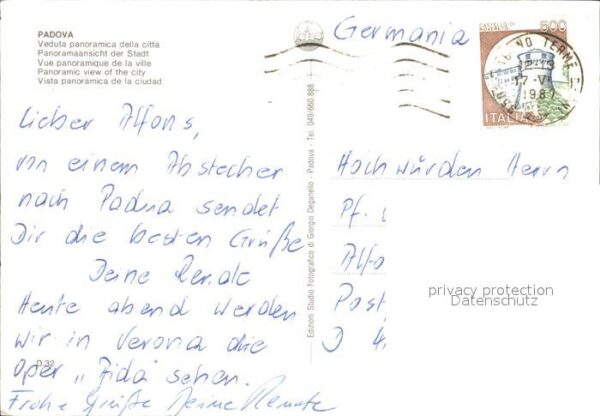 PADOVA
Veduta panoramica della città
Panoramaansicht der Stadt
Vue panoramique de la ville
Panoramic view of the city
Vista panoramica de la ciudad
Germania
CASTELLO DI
ROVERETO
500
ITALIA
TERME
1987
Lieber Alfons,
von einem Abstecher
nach Padua sendet
Dir die besten Grüße
Deine
Heute abend werden
wir in Verona die
Oper „Aida" sehen.
Frohe Grüße Deine Renate
D 32
Edizioni Studio Fotografico di Giorgio Deganello - Padova - Tel. 049-660.888
Hochwürden Herrn
Pf.
Alfo
Post
D 4.
privacy protection
Datenschutz